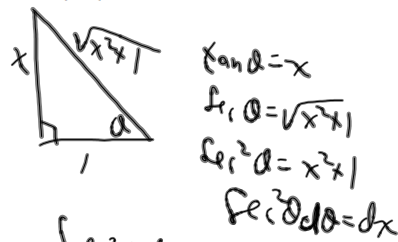 x
√x²+1
θ
1
tanθ=x
secθ=√x²+1
sec²θ=x²+1
sec²θdθ=dx